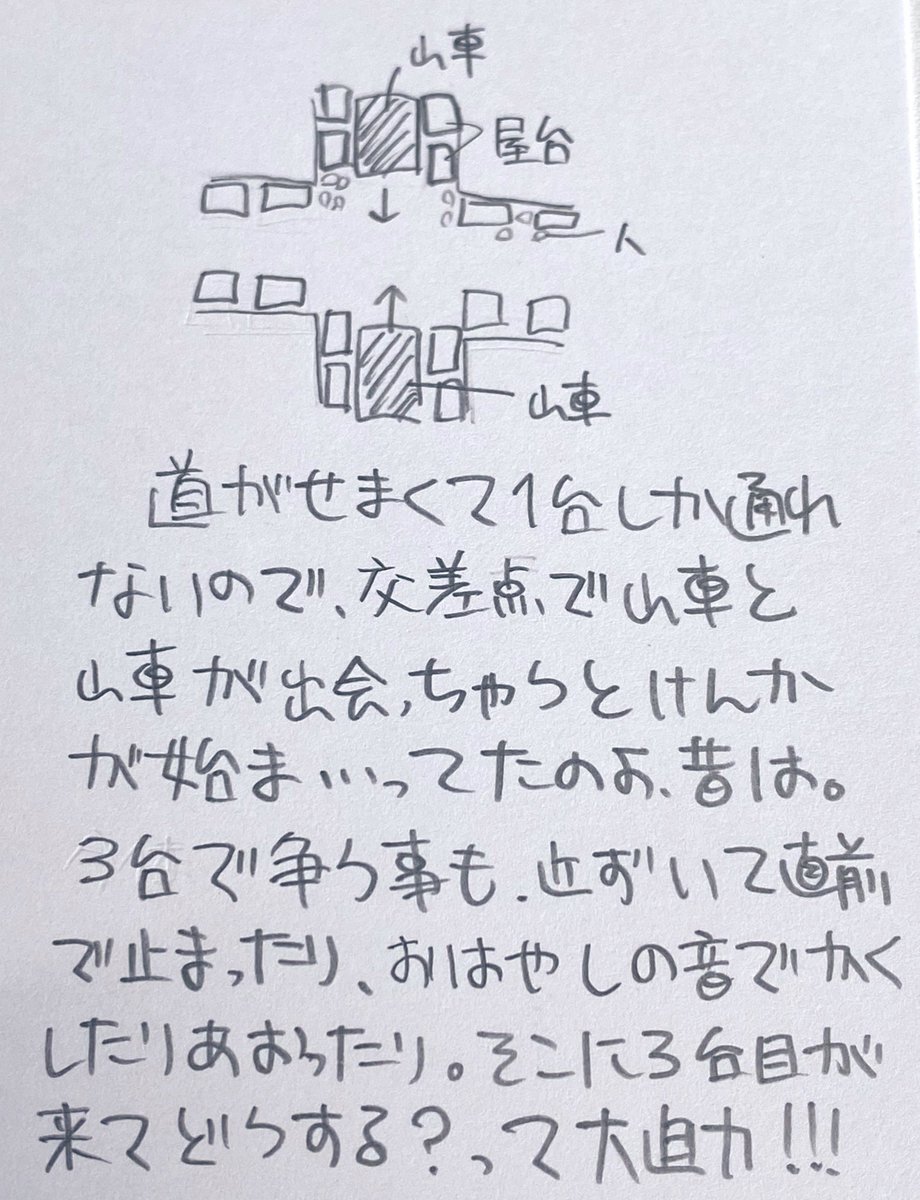 山車
屋台
人
山車
道がせまくて1台しか通れ
ないので、交差点で山車と
山車が出会っちゃうとけんか
が始ま…ってたのよ、昔は。
3台で争う事も、近ずいて直前
で止まったり、おはやしの音でかく
したりあおったり。そこに3台目が
来てどうする?って大迫力!!!